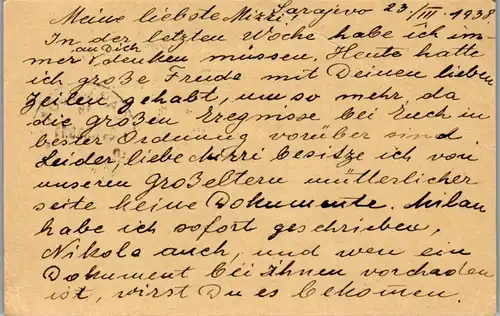 Meine liebste Mizzi! Sarajevo 23./III. 1938.
In der letzten Woche habe ich im-
an Dich
mer denken müssen. Heute hatte
ich große Freude mit Deinen lieben
Zeilen gehabt, um so mehr, da
die großen Eregnisse bei Euch in
bester Ordnung vorüber sind
Leider, liebe Mizzi besitze ich von
unseren Großeltern mütterlicher
seite keine Dokumente. Milan
habe ich sofort geschrieben,
Nikola auch, und wen ein
Dokument bei Ihnen vorchaden
ist, wirst Du es bekomen.